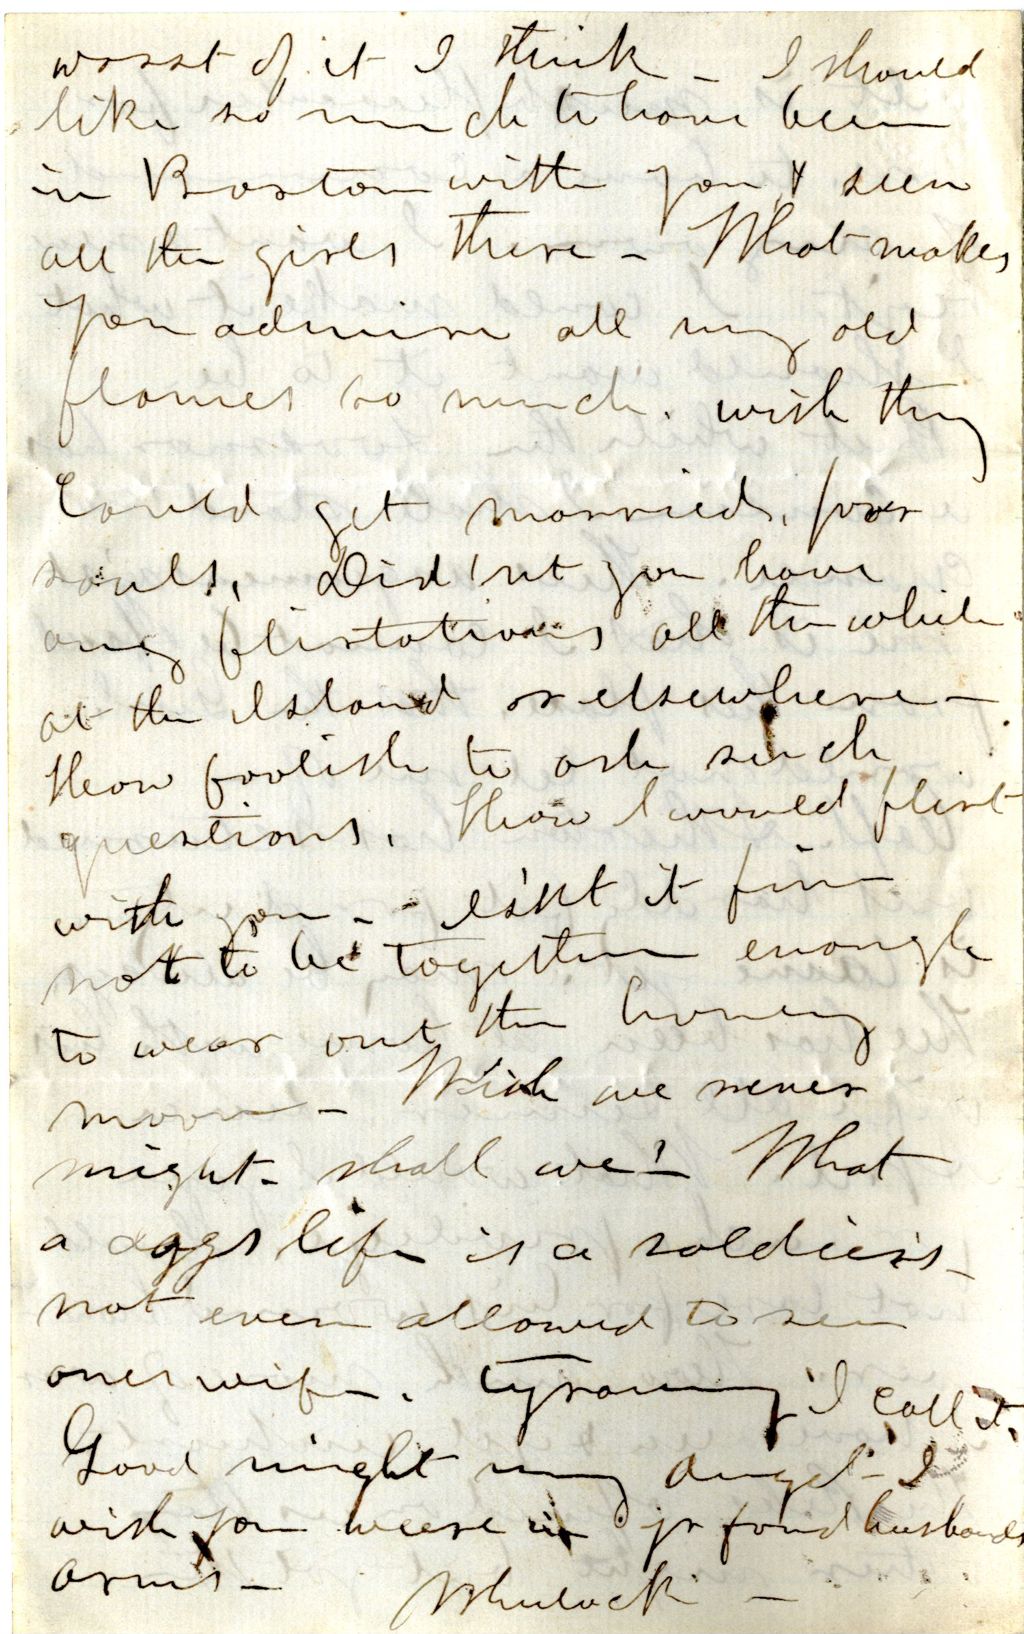 worst of it I think - I should
like so much to have been
in Boston with you & seen
all the girls there - What makes
you admire all my old
flames so much. wish they
could get married, poor
souls. Did'nt you have
any flirtations all the while
at the Island or elsewhere -
How foolish to ask such
questions. How I would flirt
with you - Isn't it fine
not to be together enough
to wear out the honey
moon - Wish we never
might - shall we? - What
a dogs life is a soldiers -
not even allowed to see
ones wife. Tyranny I call it.
Good night my angel - I
wish you were in yr fond husbands
arms -